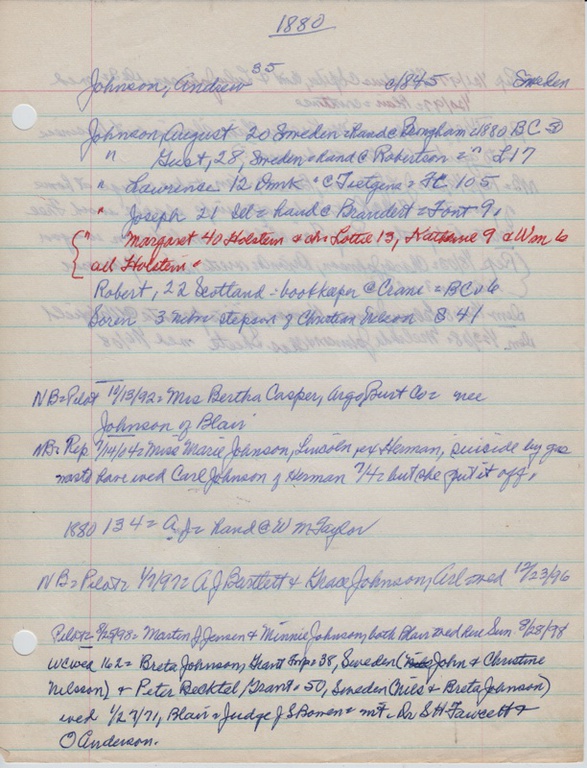 1880
35
Johnson, Andrew c/1845 Sweden
Johnson, August 20 Sweden = hand C Bingham c1880 BC
" Gust, 28, Sweden = hand C Robertson = " L17
" Lawrence 12 Dmk " C = FC 105
" Joseph 21 Ill = hand C Brandert = Font 9.
" Margaret 40 Holstein & ch: Lottie 13, 9 & Wm 6
all Holstein.
Robert, 22 Scotland = bookkeeper C Crane = BC 26
Soren 3 Nebr stepson of Christian Nelson S 41
NB = Pilot 10/13/92 = Mrs Bertha Casper, Argo, Burt Co = nee
Johnson of Blair
NB = Rep 7/14/04 = Miss Marie Johnson, Lincoln, ex Herman, suicide by gas
was to have wed Carl Johnson of Herman 7/4 = but she put it off.
1880 134 = A.J. = hand C W McTaylor
NB = Pilot = 1/7/97 = A J Bartlett & Grace Johnson, Arl = wed 12/23/96
Pilot = 8/25/98 = Martin J Jensen & Minnie Johnson, both Blair wed here Sun 8/28/98
WC wed 162 = Breta Johnson, Grant twp = 38, Sweden (John & Christine
Nelsson) & Peter Becktel, Grant = 50, Sweden (Niels & Breta Johnson)
wed 1/27/71, Blair = Judge J S Bowen = wit = Dr S H Fawcett &
O Anderson.